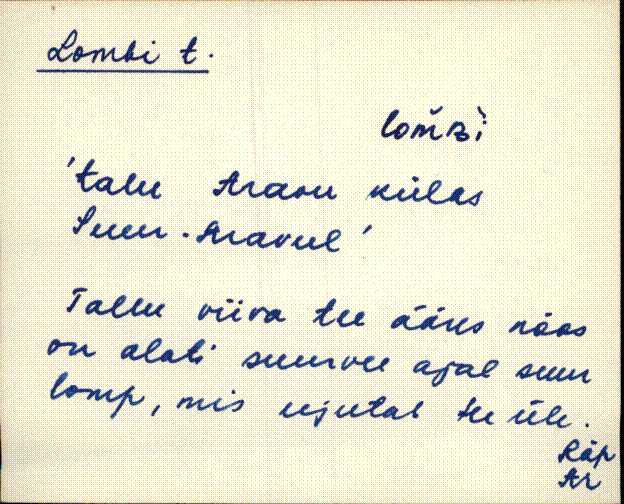 Lombi t.
lom̆ʙì
'talu Aravu külas
Suur-Aravul'
Tallu viiva tee ääres nõos
on alati suurvee ajal suur
lomp, mis ujutab tee üle.
Räp
Ar